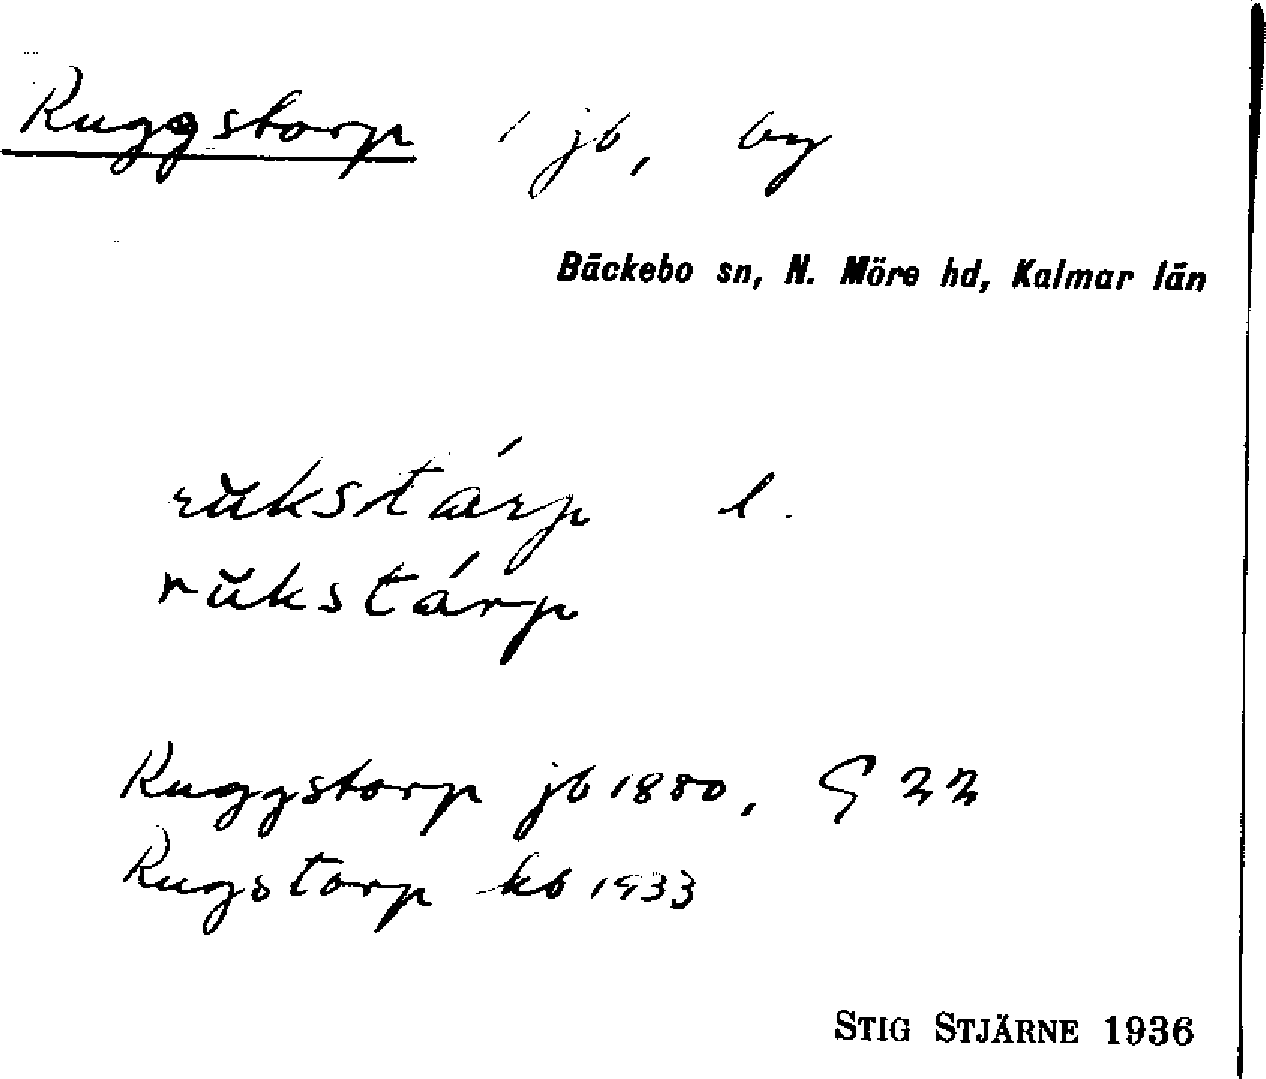 Ruggstorp 1 jb, by
Bäckebo sn, N. Möre hd, Kalmar län
rŭkstárp l.
rŭkstárp
Ruggstorp jb 1880, G 22
Rugstorp kb 1933
STIG STJÄRNE 1936